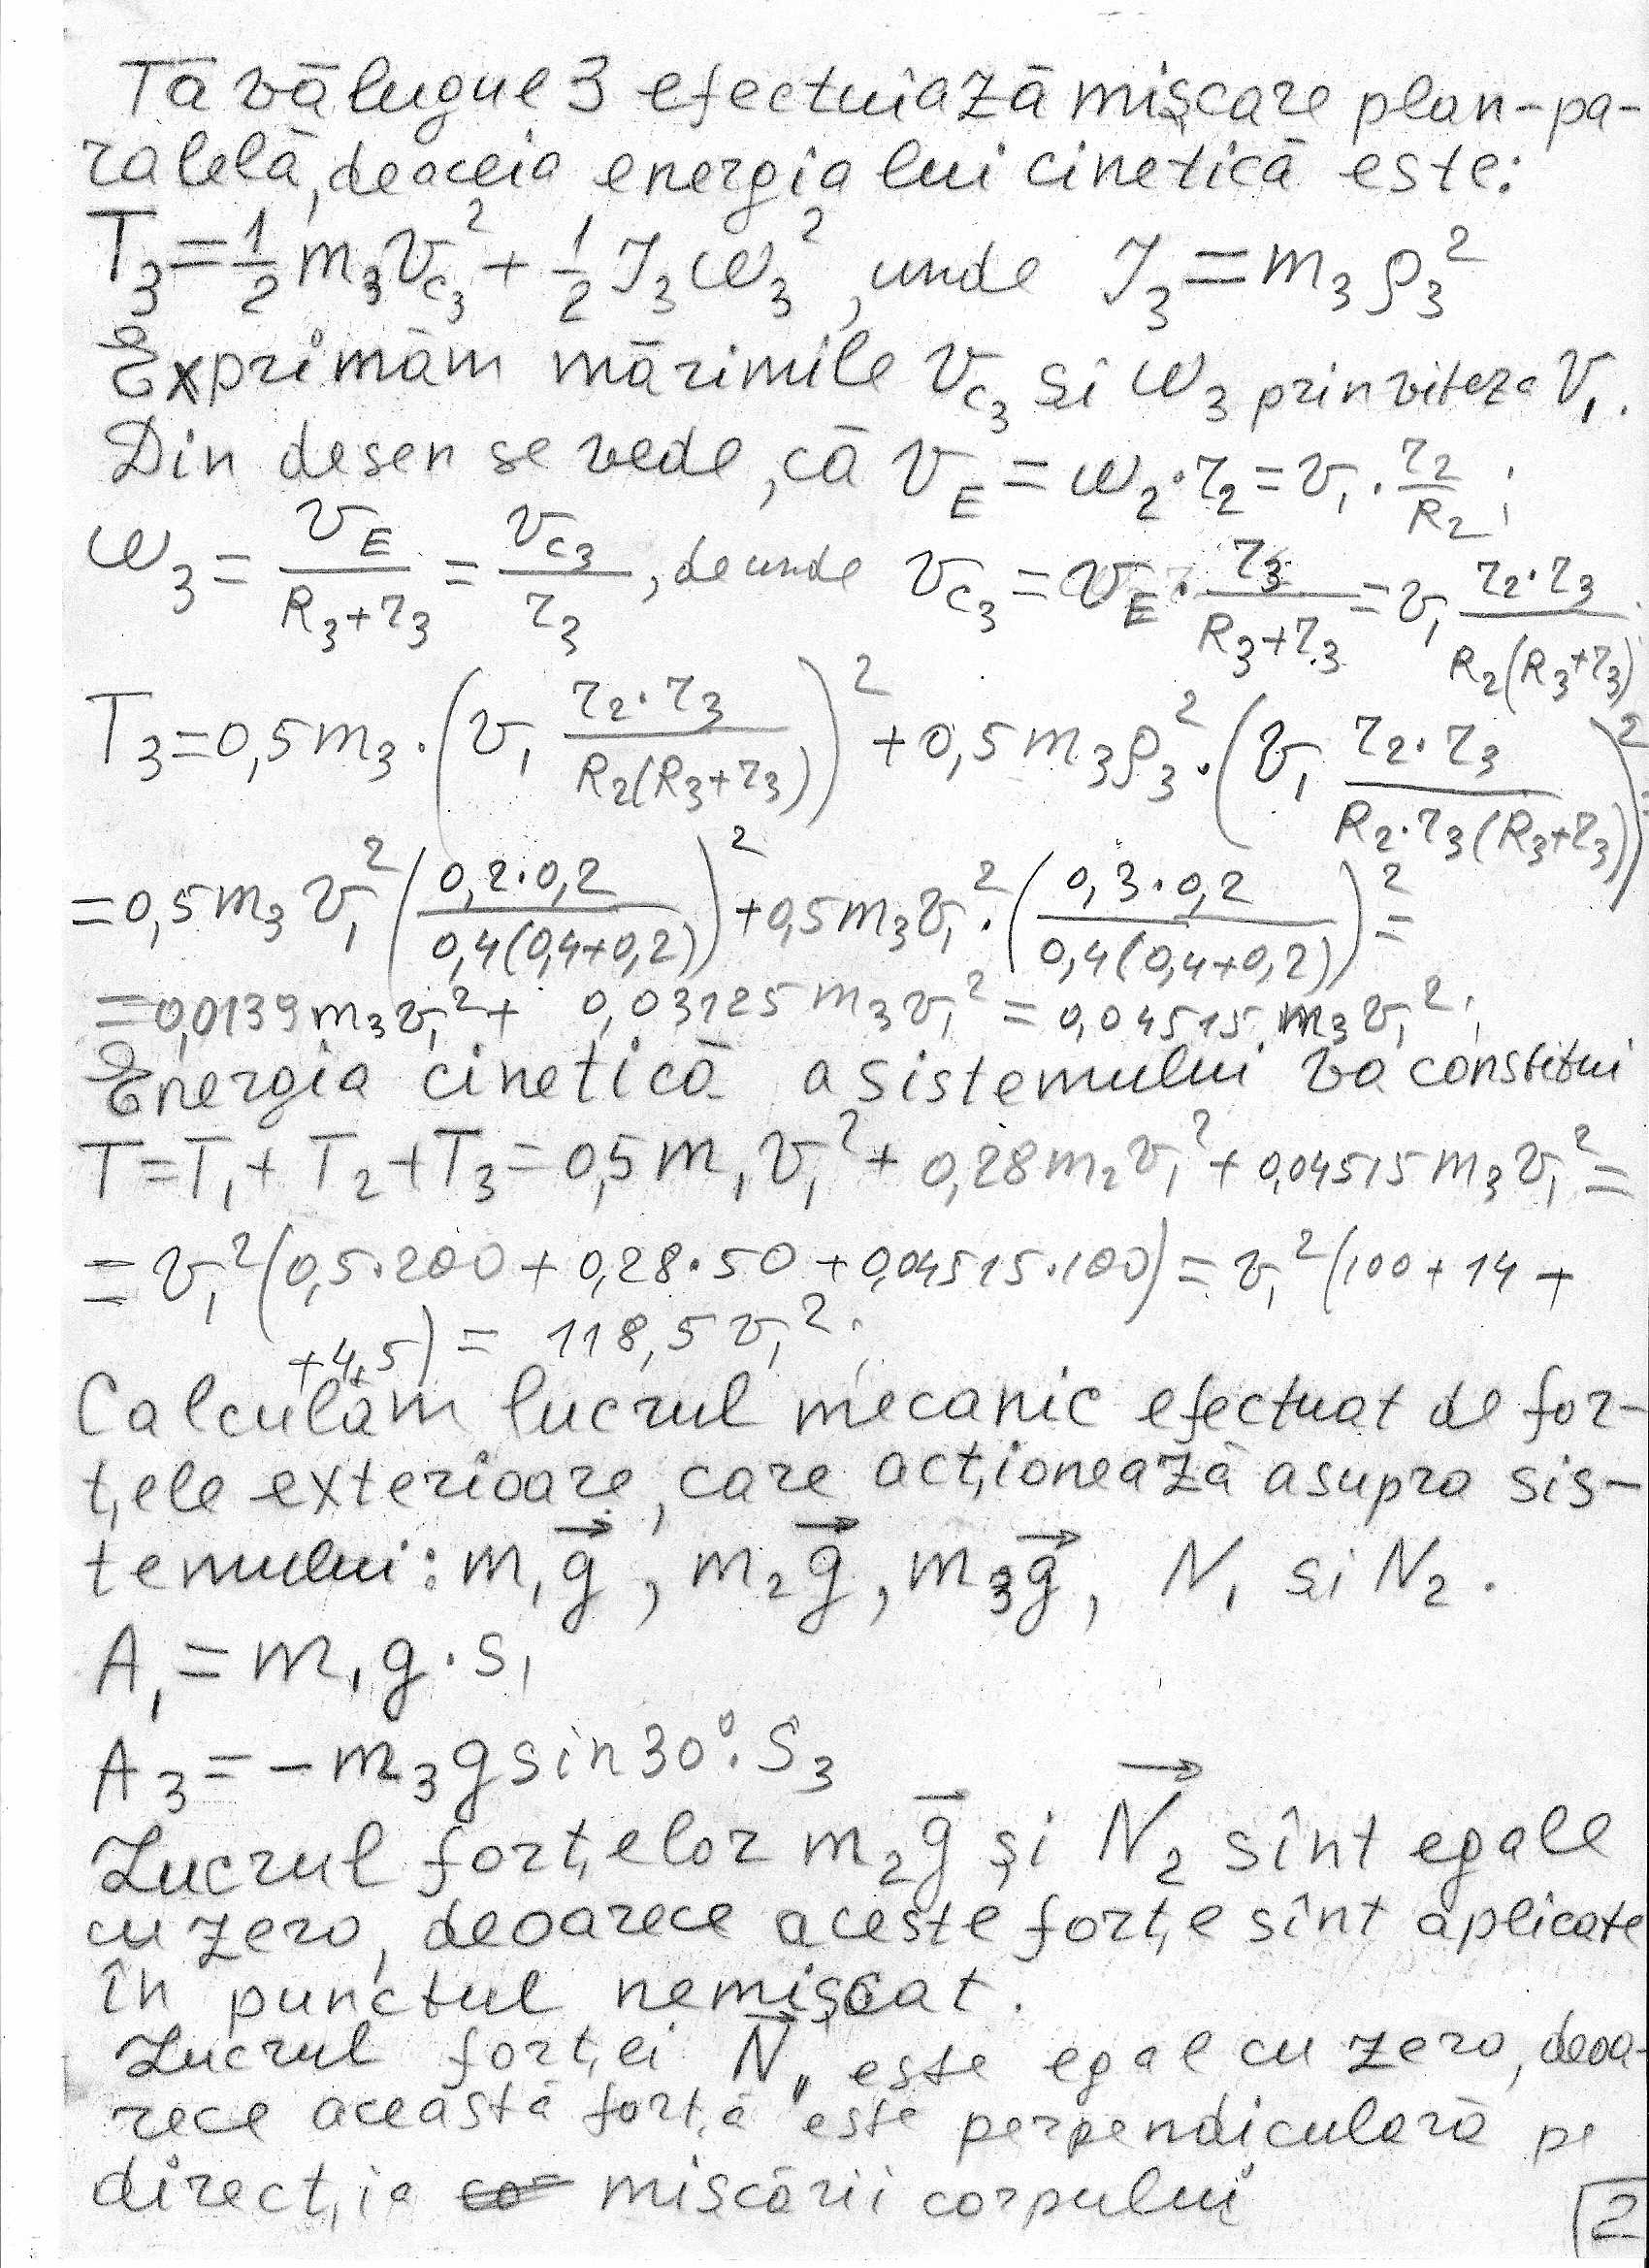 Tāvālugul 3 efectuiază mișcare plan-pa-
ralelă, deaceia energia lui cinetică este:
T₃=1/2 m₃v_c₃² + 1/2 J₃ω₃², unde J₃=m₃ρ₃²
Exprimăm mărimile v_c₃ si ω₃ prin viteza v₁.
Din desen se vede, că v_E = ω₂·r₂ = v₁·r₂/R₂;
ω₃ = v_E/(R₃+r₃) = v_c₃/r₃, de unde v_c₃ = v_E·r₃/(R₃+r₃) = v₁ r₂·r₃/(R₂(R₃+r₃)).
T₃=0,5m₃·(v₁ r₂·r₃/(R₂(R₃+r₃)))² + 0,5m₃ρ₃²·(v₁ r₂·r₃/(R₂·r₃(R₃+r₃)))²=
=0,5m₃v₁²(0,2·0,2/(0,4(0,4+0,2)))² + 0,5m₃v₁²·(0,3·0,2/(0,4(0,4+0,2)))²=
=0,0139m₃v₁² + 0,03125m₃v₁² = 0,04515m₃v₁²;
Energia cinetică a sistemului va constitui
T=T₁+T₂+T₃=0,5m₁v₁² + 0,28m₂v₁² + 0,04515m₃v₁²=
=v₁²(0,5·200+0,28·50+0,04515·100)=v₁²(100+14+
+4,5)= 118,5v₁²;
Calculăm lucrul mecanic efectuat de for-
țele exterioare, care acționează asupra sis-
temului: m₁g⃗, m₂g⃗, m₃g⃗, N₁ si N₂.
A₁=m₁g·s₁
A₃=-m₃g sin30°·S₃
Lucrul forțelor m₂g⃗ și N⃗₂ sînt egale
cu zero, deoarece aceste forțe sînt aplicate
în punctul nemișcat.
Lucrul forței N⃗₁ este egal cu zero, deoa-
rece această forță este perpendiculară pe
direcția mișcării corpului
2